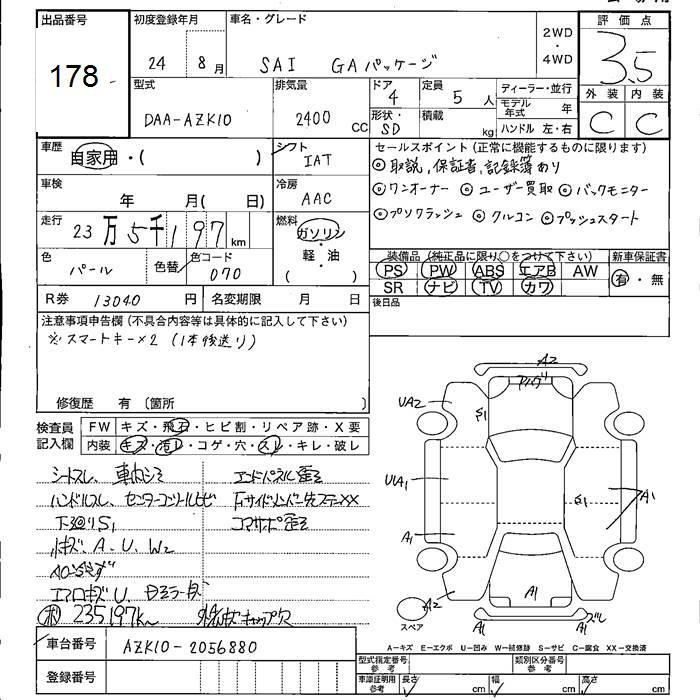 出品番号
178
初度登録年月
24 8月
車名・グレード
SAI GAパッケージ
2WD
・
4WD
評価点
3.5
外装 内装
C C
型式
DAA-AZK10
排気量
2400 CC
ドア
4
形状・
SD
定員
5 人
積載
kg
ディーラー・並行
モデル年式 年
ハンドル 左・右
車歴
自家用・( )
シフト
IAT
セールスポイント (正常に機能するものに限ります)
◎取説,保証書,記録簿あり
◎ワンオーナー ◎ユーザー買取 ◎バックモニター
◎プリクラッシュ ◎クルコン ◎プッシュスタート
車検
年 月( 日)
冷房
AAC
走行
23万5千197km
燃料
ガソリン
・
軽・油
・
( )
色
パール
色替
色コード
070
装備品 (純正品に限り○をつけて下さい)
PS PW ABS エアB AW
SR ナビ TV カワ
新車保証書
有・無
R券 13040 円
名変期限 月 日
後日品
注意事項申告欄 (不具合内容等は具体的に記入して下さい)
※スマートキー×2 (1本後送り)
修復歴 有 〔箇所
検査員
記入欄
FW キズ・飛石・ヒビ割・リペア跡・X要
内装 キズ・汚れ・コゲ・穴・スレ・キレ・破レ
シートスレ、車内シミ
エンドパネル歪
ハンドルスレ、センターコンソールヒビ
下廻りS1
コアサポ歪
小キズ、A、U、W2
エアロキズU
235197km
キャップ欠
車台番号 AZK10-2056880
登録番号
A2
UA2
S1
UA1
A1
S1
A1
A2
A1
A1
A1
ズレ
スペア
A―キズ E―エクボ U―凹み W―補修跡 S―サビ C―腐食 XX―交換済
型式指定番号
参考
類別区分番号
参考
車庫証明用
参考
長さ cm
幅 cm
高さ cm